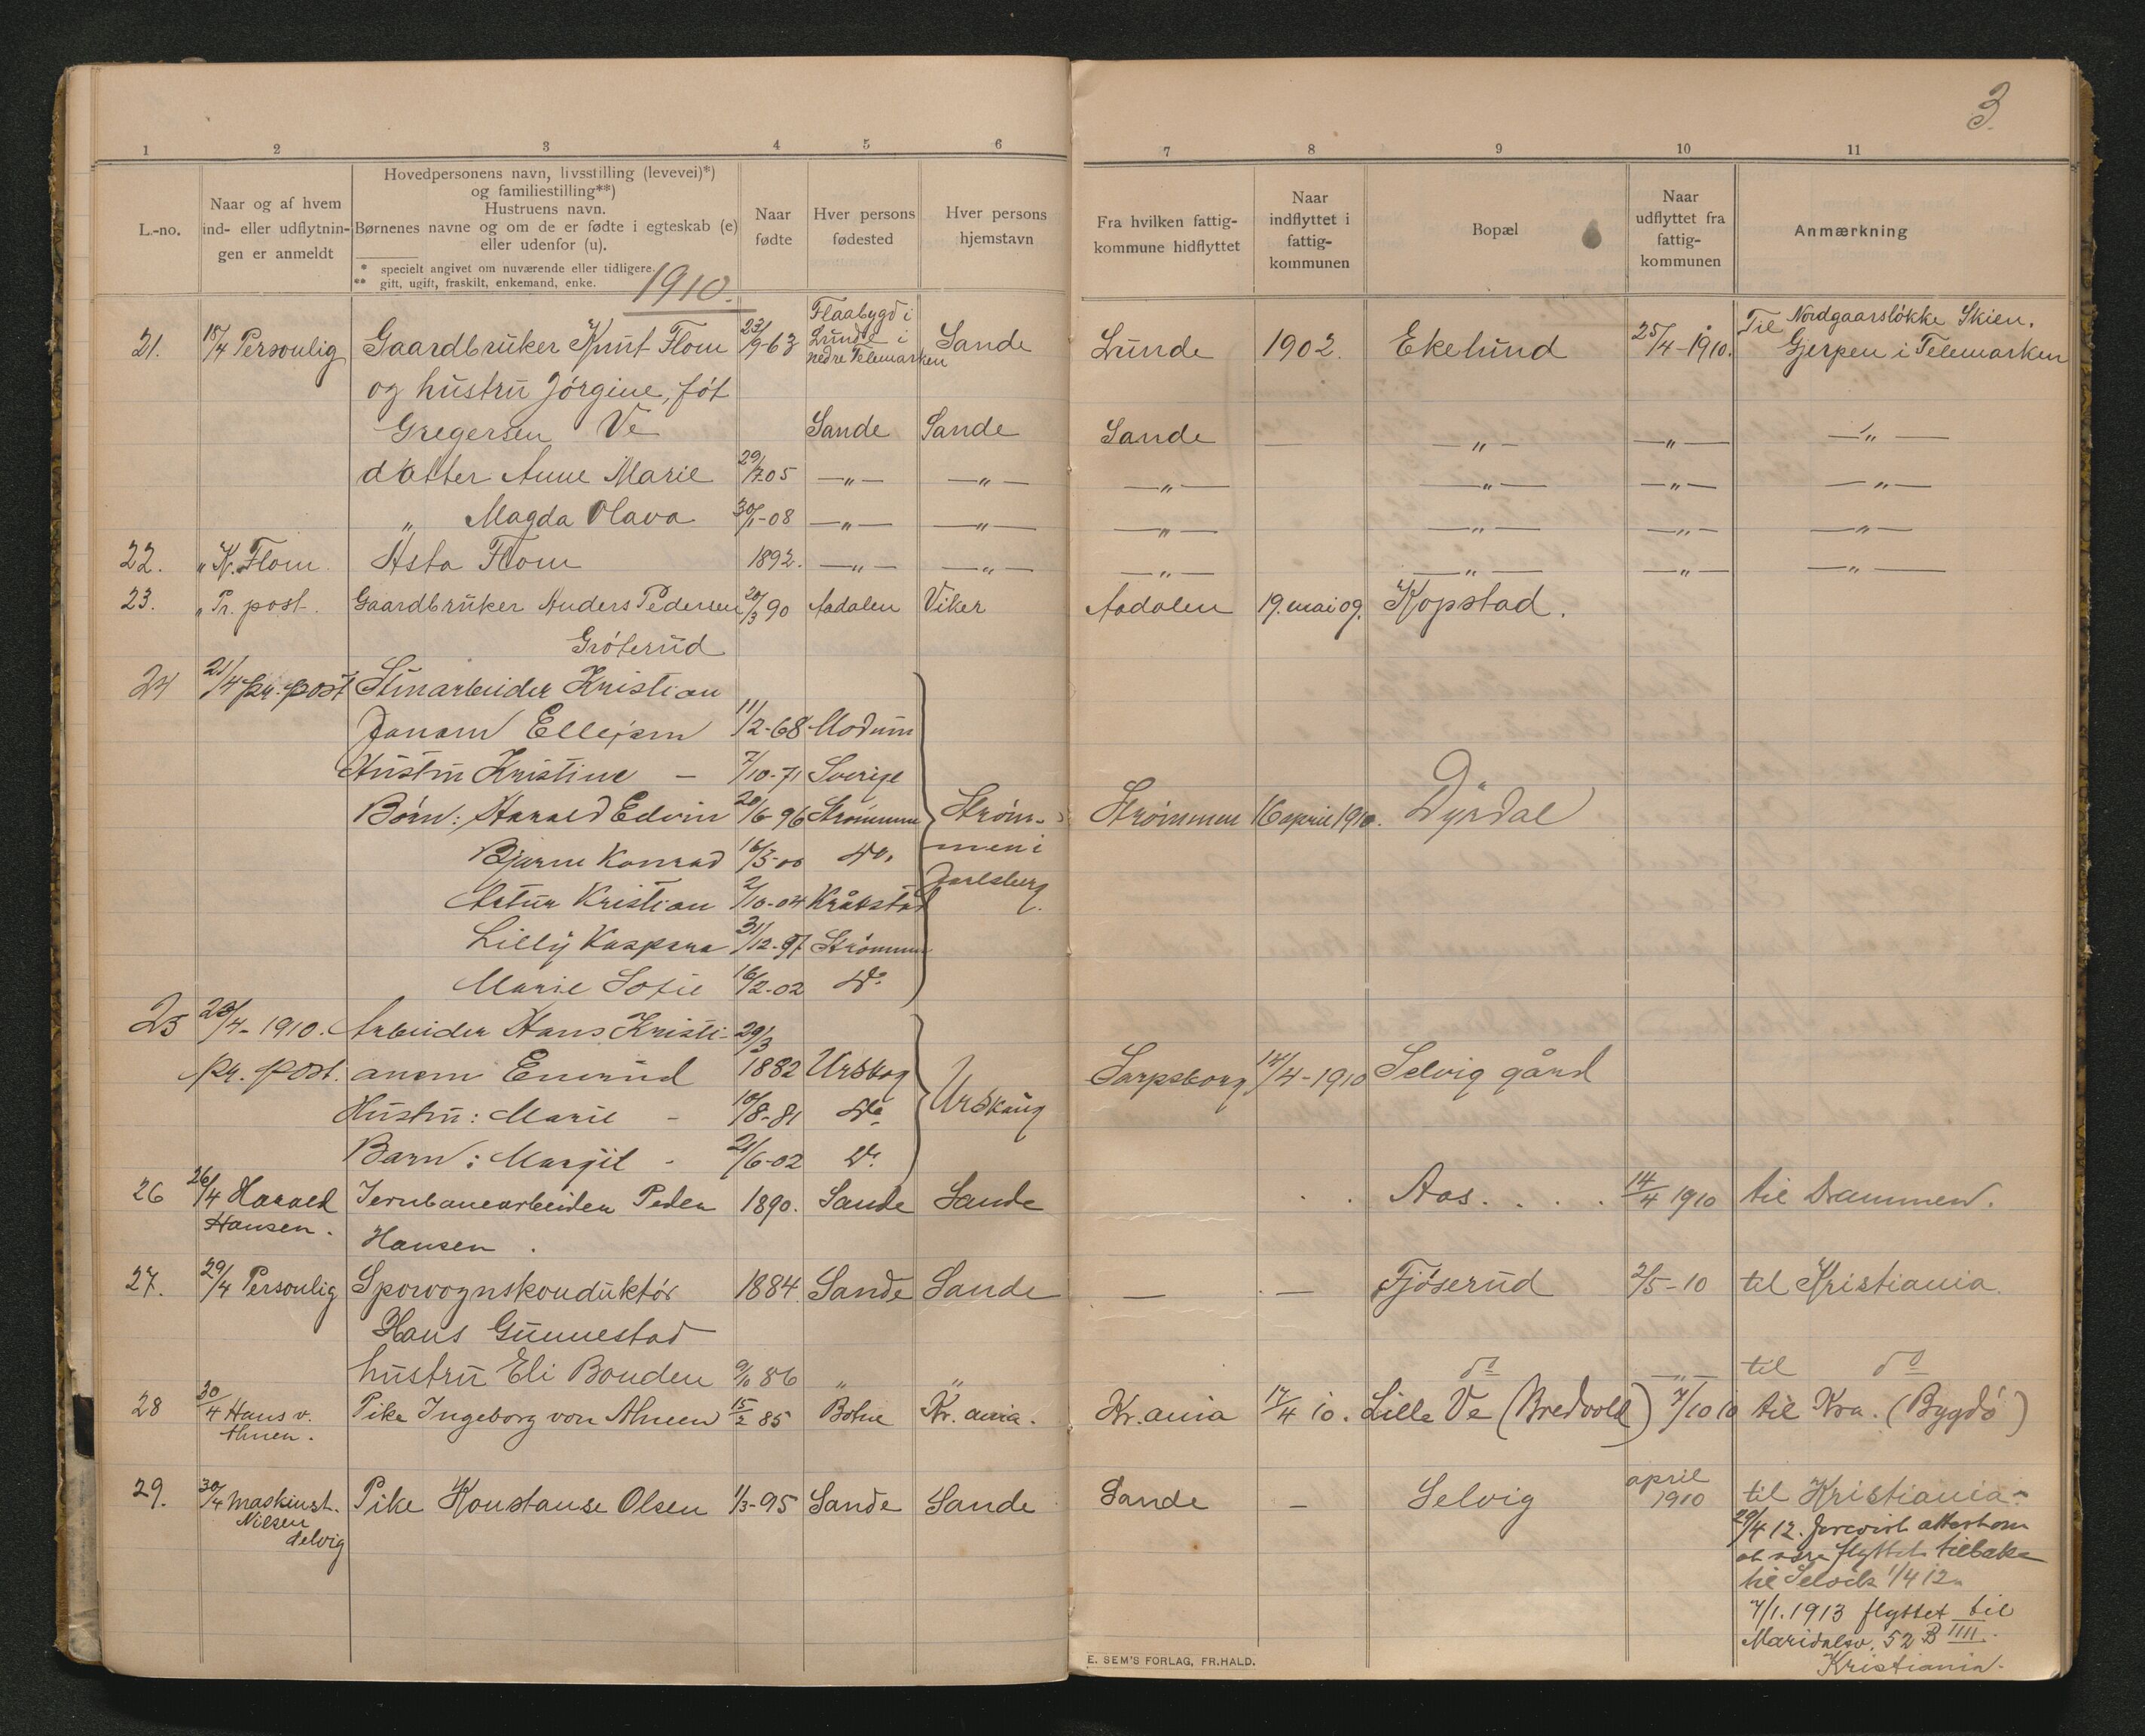 3
1 2 3 4 5 6 7 8 9 10 11
L.-no.
Naar og af hvem
ind- eller udflytnin-
gen er anmeldt
Hovedpersonens navn, livsstilling (levevei)*)
og familiestilling**)
Hustruens navn.
Børnenes navne og om de er fødte i egteskab (e)
eller udenfor (u).
* specielt angivet om nuværende eller tidligere.
** gift, ugift, fraskilt, enkemand, enke.
Naar
fødte
Hver persons
fødested
Hver persons
hjemstavn
Fra hvilken fattig-
kommune hidflyttet
Naar
indflyttet i
fattig-
kommunen
Bopæl
Naar
udflyttet fra
fattig-
kommunen
Anmærkning
1910.
Flaabygd i
Lunde i
nedre Telemarken
Til Nordgaarsløkke Skien.
21. 18/4 Personlig Gaardbruker Knut Flom 23/9-63 Sande Lunde 1902. Ekelund 25/4-1910. Gjerpen i Telemarken
og hustru Jørgine, føt
Gregersen Ve Sande Sande Sande — — „ — — „ — — „ —
datter Anne Marie 29/7-05 — „ — — „ — — „ — — „ — — „ — — „ —
„ Magda Olava 30/1-08 — „ — — „ — — „ — — „ — — „ — — „ —
22. „ K. Flom Asta Flom 1892. — „ — — „ — — „ — — „ — — „ — — „ —
23. „ Pr. post. Gaardbruker Anders Pedersen 20/3 90 Aadalen Viker Aadalen 19. mai 09. Kopstad.
Grøterud
24 21/4 pr. post Stenarbeider Kristian
Jansen Ellefsen 11/2-68 Modum
Hustru Kristine — 7/10-71 Sverige
Børn: Harald Edvin 20/6-96 Strømmen Strøm- Strømmen 16 april 1910. Dyrdal
Bjarne Konrad 16/3-00 Do. men i
Artur Kristian 2/10-04 Kråkstad Jarlsberg.
Lilly Kaspara 31/12-97 Strømmen
Marie Sofie 16/2-02 Do
25 23/4-1910. Arbeider Hans Kristi- 29/3
pr. post. ansen Emerud 1882 Urskog Sarpsborg 14/4-1910 Selvig gård
Hustru: Marie - 10/8-81 Do Urskaug
Barn: Margit - 21/6-02 Do.
26 26/4 Harald Jernbanearbeider Peder 1890. Sande Sande . . Aas. . . . 14/4 1910 til Drammen.
Hansen. Hansen.
27. 29/4 Personlig Sporvognskonduktør 1884. Sande Sande — — Fjøserud 2/5-10 til Kristiania.
Hans Gunnestad
hustru Eli Bonden 9/10 86 „ „ do — „ — til do
28 30/4 Hans v. Pike Ingeborg von Ahnen 15/2 85 Botne Kr.ania. Kr.ania 17/4 10. Lille Ve (Bredvold) 7/10 10 til Kra. (Bygdø)
Ahnen.
29. 30/4 Maskinst. Pike Konstanse Olsen 1/3-95 Sande Sande Sande — Selvig april 1910 til Kristiania.
Nilsen
Selvig
29/4 12.
at være flyttet tilbake
til Selvik 1/4 12.
7/1. 1913 flyttet til
Maridalsv. 52 B IIII.
Kristiania.
E. SEM'S FORLAG, FR.HALD.